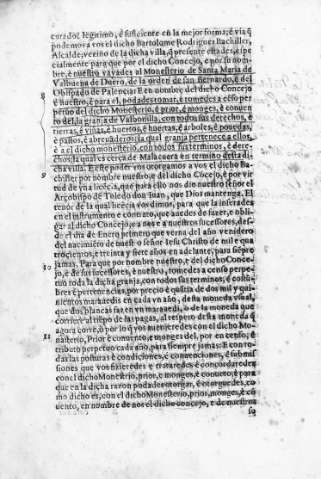 curador legitimo, è suficiente en la mejor forma, è via q̃
podemos a vos el dicho Bartolome Rodriguez Bachiller,
Alcalde, vezino de la dicha villa, q̃ presente estades, espe
cialmente para que por el dicho Concejo, e por su nom-
bre, è nuestro vayades al Monesterio de Santa Maria de
Valbuena de Duero, de la orden de san Bernardo, è del
8 Obispado de Palencia: E en nombre del dicho Concejo
è nuestro, è para el, podades tomar, è tomedes a censo per
petuo del dicho Monesterio, è prior, è monges, è conuen
to del, la granja de Valbonilla, con todas sus derechos, è
tierras, è viñas, è huertos, è huertas, è arboles, è posedas,
è pastos, è abreuaderos, la qual granja pertenece a ellos,
e a el dicho monesterio, con todos sus terminos, è dere-
chos, la qual es cerca de en termino desta di
9 cha villa. E este poder vos otorgamos a vos el dicho Ba-
chiller por nombre nuestro, è del dicho Cõcejo, è por vir
tud de vna licẽcia, que para ello nos dio nuestro señor el
Arçobispo de Toledo don Iuan, que Dios mantenga. El
tenor de la qual licẽcia vos damos, para que la insertades
en el instrumento e contrato, que ayades de fazer, e obli-
gar al dicho Concejo, e a nos e a nuestros sucessores, des-
de el dia de Enero primero que verna del año venidero
del nacimiẽto de nuestro señor Iesu Christo de mil e qua
trocientos, e treinta y siete años en adelante, para siẽpre
jamas. Para que por nombre nuestro, e del dicho Conce-
10 jo, è de sus sucessores, è nuestro, tomedes a censo perpe-
tuo toda la dicha granja, con todos sus terminos, è costũ-
bres è pertenencias, por precio è quãtia de dos mil y qui-
nientos marauedis en cada vn año, desta moneda vsual,
que dos blancas fazen vn marauedi, o de la moneda que
corriere al tiẽpo de las pagas, al respeto desta moneda q̃
agora corre, è por lo q̃ vos minieredes con el dicho Mo-
11 nasterio, Prior è conuento, e monges del, por en censo, è
tributo perpetuo cada año, para siempre jamas: E otorgo
dar las posturas è condiciones, è conuenciones, è submis
siones que vos fizieredes e tratardes è concordaredes
con el dicho Monesterio, prior, e monges, è conuẽto, è para
que en la dicha razon podades otorgar, è otorguedes, co
mo dicho es, con el dicho Monesterio, prior, monges, è cõ
uento, en nombre de nos el dicho concejo, e de nuestros
su